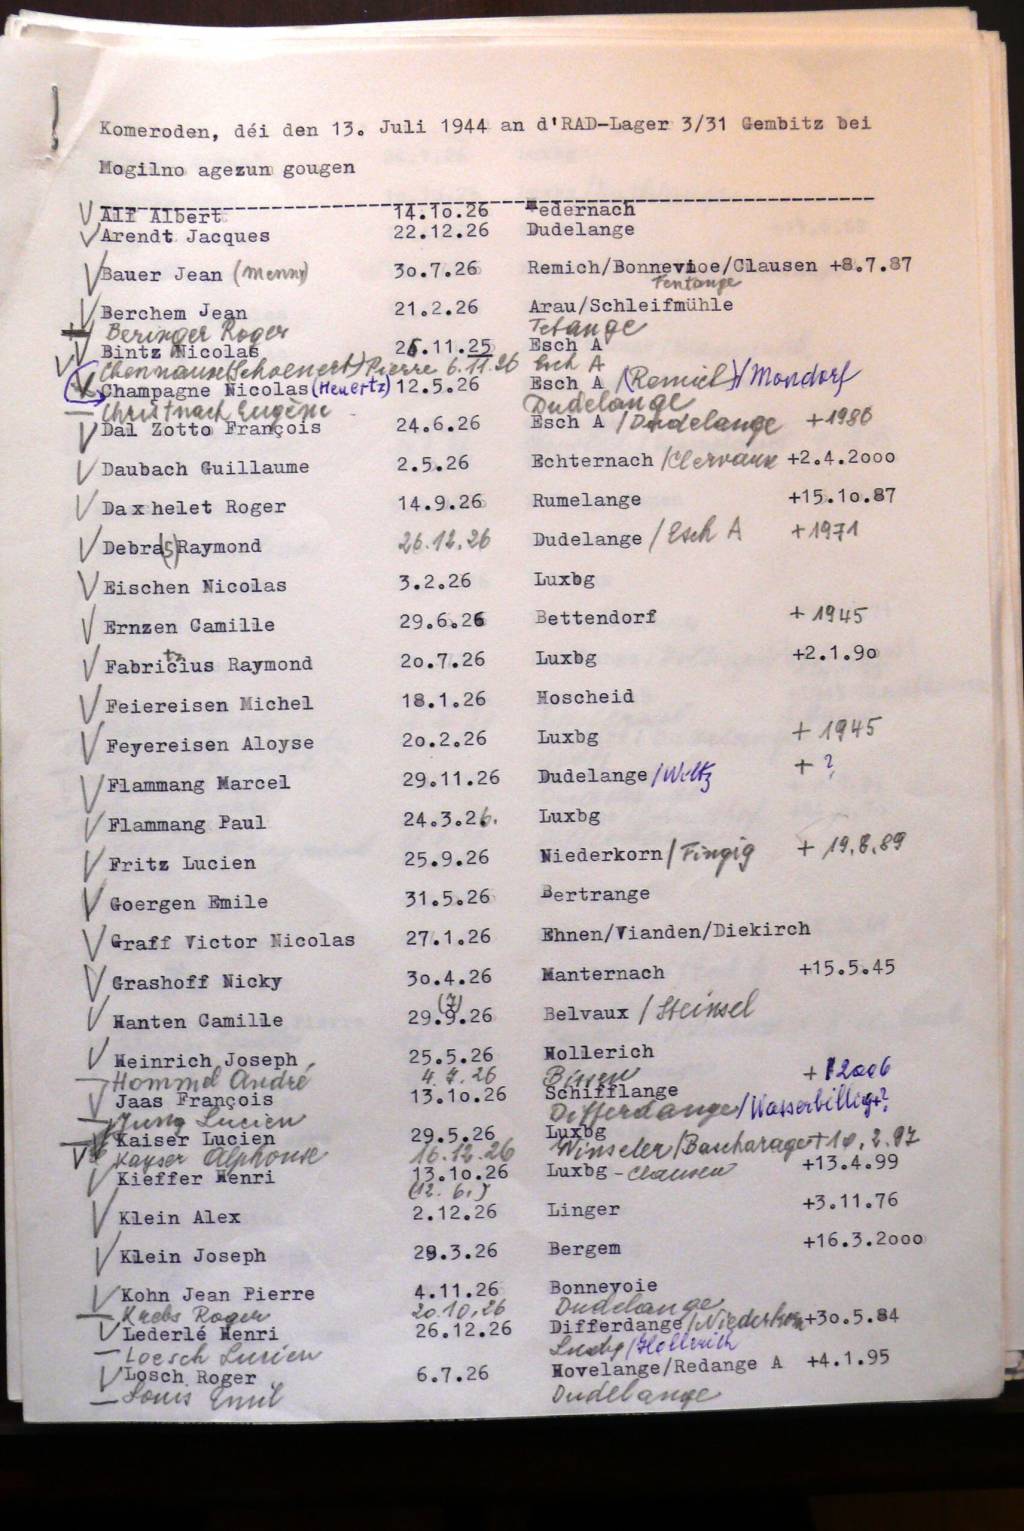 Komeroden, déi den 13. Juli 1944 an d'RAD-Lager 3/31 Gembitz bei
Mogilno agezun gougen
V Alf Albert 14.10.26 Federnach
V Arendt Jacques 22.12.26 Dudelange
V Bauer Jean (Menny) 30.7.26 Remich/Bonnevioe/Clausen +8.7.87
Fentange
V Berchem Jean 21.2.26 Arau/Schleifmühle
Beringer Roger Tetange
V Bintz Nicolas 26.11.25 Esch A
V Chennaux (Schoenert) Pierre 6.11.26 Esch A
V Champagne Nicolas (Heuertz) 12.5.26 Esch A /(Remich)/Mondorf
— Christnach Eugène Dudelange
V Dal Zotto François 24.6.26 Esch A /Dudelange +1986
V Daubach Guillaume 2.5.26 Echternach /Clervaux +2.4.2000
V Daxhelet Roger 14.9.26 Rumelange +15.10.87
V Debra(s) Raymond 26.12.26 Dudelange / Esch A +1971
V Eischen Nicolas 3.2.26 Luxbg
V Ernzen Camille 29.6.26 Bettendorf +1945
V Fabricius Raymond 20.7.26 Luxbg +2.1.90
V Feiereisen Michel 18.1.26 Hoscheid
V Feyereisen Aloyse 20.2.26 Luxbg +1945
V Flammang Marcel 29.11.26 Dudelange/Weltz + ?
V Flammang Paul 24.3.26. Luxbg
V Fritz Lucien 25.9.26 Niederkorn/Fingig + 19.8.89
V Goergen Emile 31.5.26 Bertrange
V Graff Victor Nicolas 27.1.26 Ehnen/Vianden/Diekirch
V Grashoff Nicky 30.4.26 Manternach +15.5.45
(7)
V Hanten Camille 29.9.26 Belvaux / Steinsel
V Heinrich Joseph 25.5.26 Hollerich
— Hommel André 4.7.26 Bissen + 2006
V Jaas François 13.10.26 Schifflange
— Jung Lucien Differdange/Wasserbillig+?
V Kaiser Lucien 29.5.26 Luxbg
V Kayser Alphonse 16.12.26 Winseler/Bascharage +10.2.97
V Kieffer Henri 13.10.26 Luxbg - Clausen +13.4.99
(12. 6.)
V Klein Alex 2.12.26 Linger +3.11.76
V Klein Joseph 29.3.26 Bergem +16.3.2000
V Kohn Jean Pierre 4.11.26 Bonnevoie
— Krebs Roger 20.10.26 Dudelange
V Lederlé Henri 26.12.26 Differdange/Niederkorn +30.5.84
— Loesch Lucien Luxbg/Hollerich
V Losch Roger 6.7.26 Hovelange/Redange A +4.1.95
— Louis Emil Dudelange